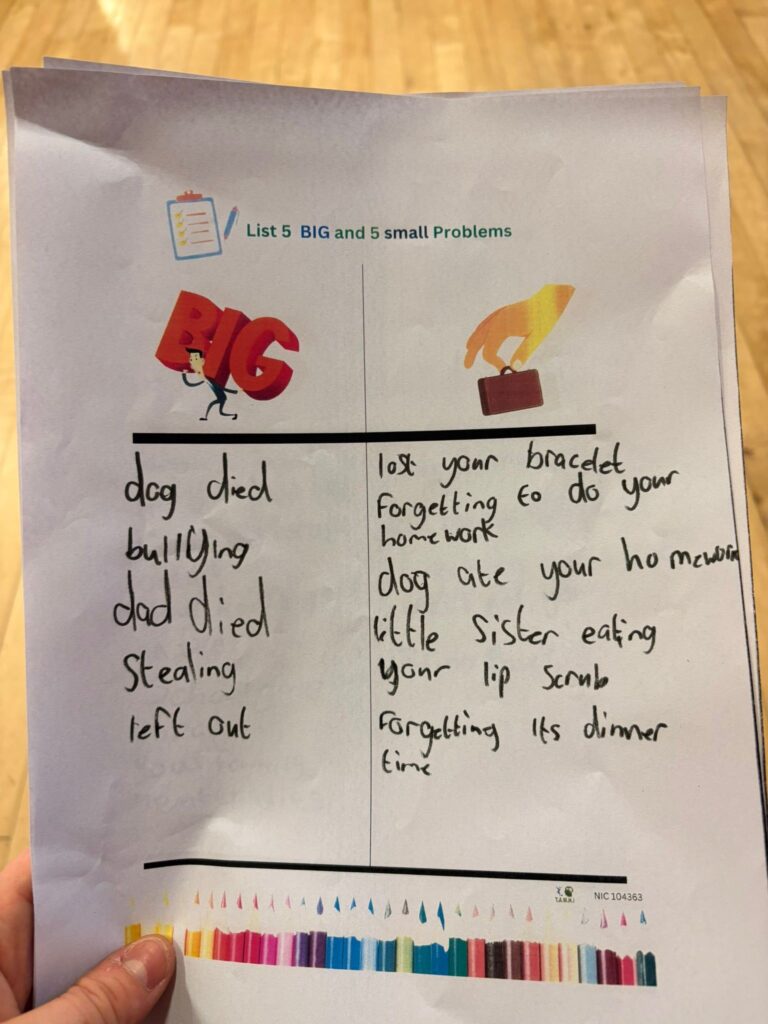 List 5 BIG and 5 small Problems
BIG
dog died
bullying
dad died
Stealing
left out
lost your bracelet
Forgetting to do your
homework
dog ate your homework
little Sister eating
your lip Scrub
Forgetting its dinner
time
NIC 104363